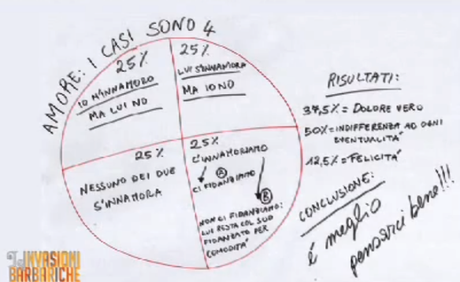 AMORE: I CASI SONO 4
25%
IO M'INNAMORO
MA LUI NO
25%
LUI S'INNAMORA
MA IO NO
25%
NESSUNO DEI DUE
S'INNAMORA
25%
C'INNAMORIAMO
A
CI FIDANZIAMO
B
NON CI FIDANZIAMO:
LUI RESTA COL SUO
FIDANZATO PER
COMODITA'
RISULTATI:
37,5% = DOLORE VERO
50% = INDIFFERENZA AD OGNI
EVENTUALITA'
12,5% = FELICITA'
CONCLUSIONE:
é meglio
pensarci bene!!!
Le INVASIONI
BARBARICHE